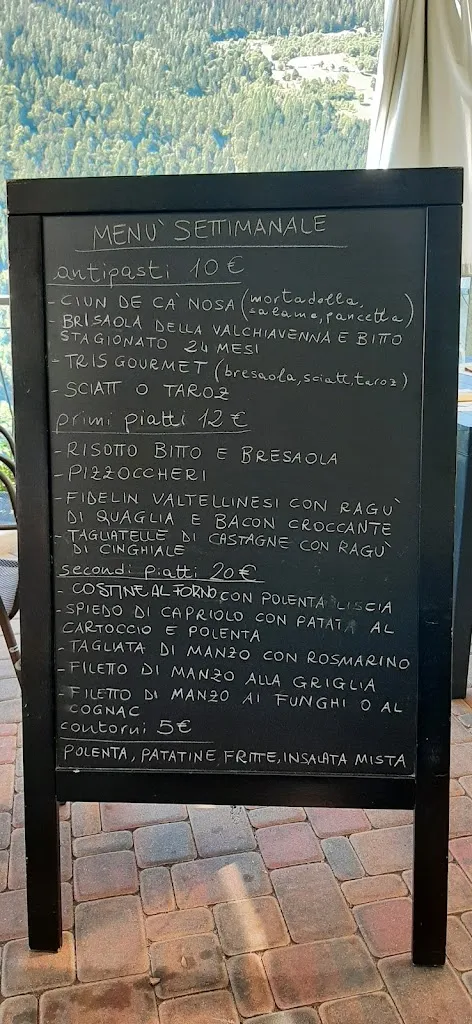 MENU' SETTIMANALE
antipasti 10 €
- CIUN DE CA' NOSA (mortadella,
salame, pancetta)
- BRISAOLA DELLA VALCHIAVENNA E BITTO
STAGIONATO 24 MESI
- TRIS GOURMET (bresaola, sciatt, taroz)
- SCIATT O TAROZ
primi piatti 12 €
- RISOTTO BITTO E BRESAOLA
- PIZZOCCHERI
- FIDELIN VALTELLINESI CON RAGU'
DI QUAGLIA E BACON CROCCANTE
- TAGLIATELLE DI CASTAGNE CON RAGU'
DI CINGHIALE
secondi piatti 20 €
- COSTINE AL FORNO CON POLENTA LISCIA
- SPIEDO DI CAPRIOLO CON PATATA AL
CARTOCCIO E POLENTA
- TAGLIATA DI MANZO CON ROSMARINO
- FILETO DI MANZO ALLA GRIGLIA
- FILETTO DI MANZO AI FUNGHI O AL
COGNAC
contorni 5 €
POLENTA, PATATINE FRITTE, INSALATA MISTA